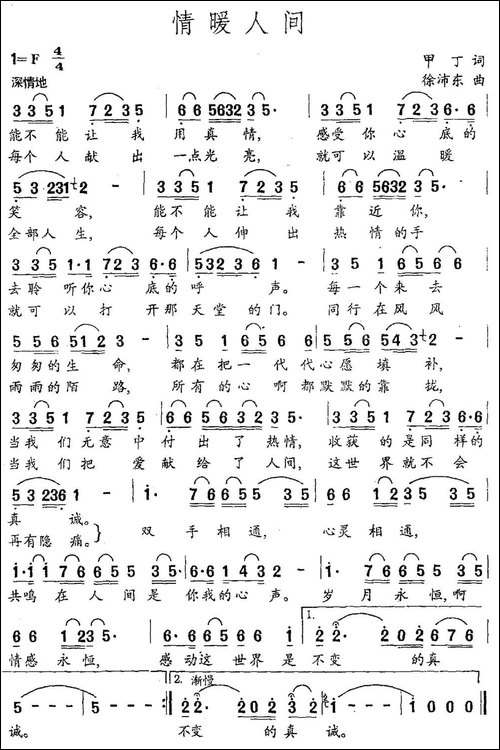 情暖人间
1=F 4/4
甲丁 词
深情地
徐沛东 曲
3 3 5 1 7 2 3 5 | 6 6 5632 3 5 - | 3 3 5 1 7 2 3 6·6 |
能不能让我用真情，感受你心底的
每个人献出一点光亮，就可以温暖
5 3 231 2 - | 3 3 5 1 7 2 3 5 | 6 6 5632 3 5 - |
笑容，能不能让我靠近你，
全部人生，每个人伸出热情的手
3 3 5 1·1 7 2 3 6·6 | 5 532 3 6 1 - | 3 3 5 1 6 5 6 6 |
去聆听你心底的呼声。每一个来去
就可以打开那天堂的门。同行在风风
5 5 6 5 1 2 3 - | 2 2 3 5 1 6 5 6 | 5 5 6 5 4 3 2 - |
匆匆的生命，都在把一代代心愿填补，
雨雨的陌路，所有的心啊都默默的靠拢，
3 3 5 1 7 2 3 5 | 6 6 5 6 3 2 3 5 - | 3 3 5 1 7 2 3 6·6 |
当我们无意中付出了热情，收获的是同样的
当我们把爱献给了人间，这世界就不会
5 3 236 1 - | 1· 7 6 6 5 5 3 5 | 6 6 1 2 3 5 3 5 |
真诚。
再有隐痛。
双手相通，心灵相通，
1·1 1 7 7 6 6 5 5 3 5 | 6·6 1 4 3 2 - | 1· 7 6 6 5 5 3 5 |
共鸣在人间是你我的心声。岁月永恒，啊
6 6 1 2 3 5 · | 6 6 5 6 5 6 6 3 2 1 | 1. 2 2· 2 0 2 6 7 6 |
情感永恒，感动这世界是不变的真
5 - - - | 5 - - - :| 2. 渐慢 2 2· 2 0 2 3 2 | 1 - - - |
诚。不变的真诚。